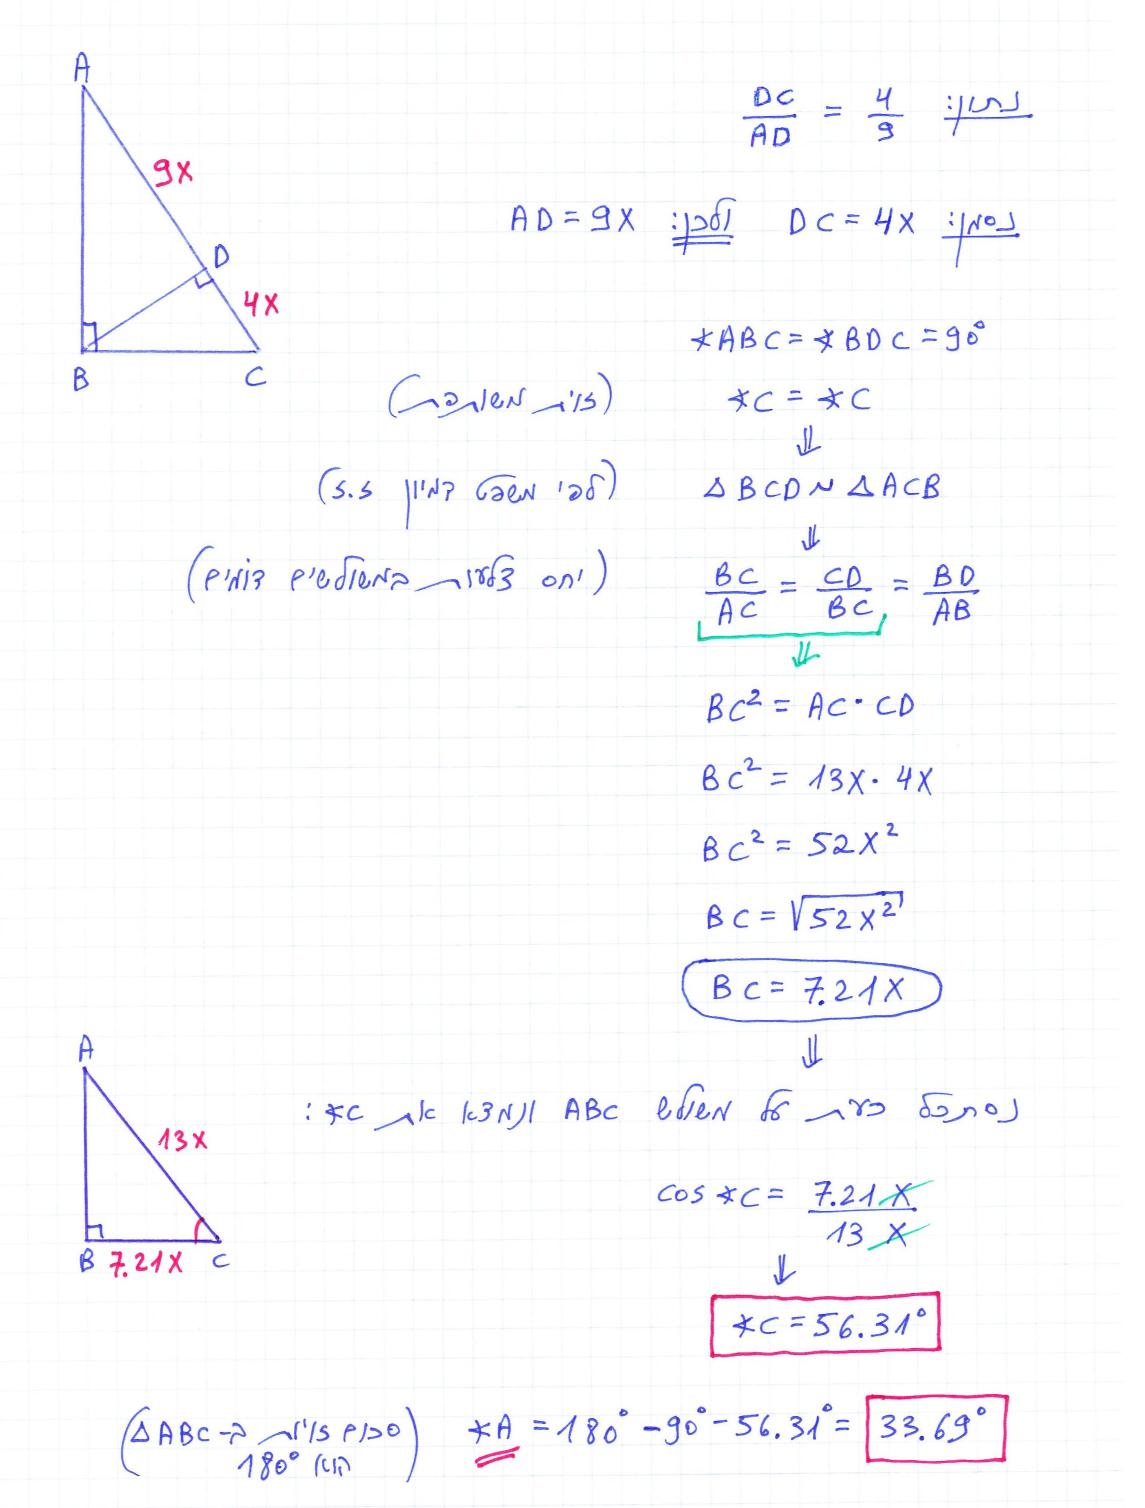 A
נתון: DC/AD = 4/9
9X
נסמן: DC = 4X ולכן: AD = 9X
D
4X
∢ABC = ∢BDC = 90°
B C
∢C = ∢C (זוית משותפת)
⇓
△BCD ~ △ACB (לפי משפט דמיון ז.ז)
⇓
BC/AC = CD/BC = BD/AB (יחס צלעות במשולשים דומים)
⇓
BC² = AC · CD
BC² = 13X · 4X
BC² = 52X²
BC = √52X²
BC = 7.21X
⇓
A
נסתכל כעת על משולש ABC ונמצא את ∢C:
13X
cos ∢C = 7.21X/13X
B 7.21X C
⇓
∢C = 56.31°
∢A = 180° - 90° - 56.31° = 33.69° (סכום זוית ב- △ABC
הוא 180°)